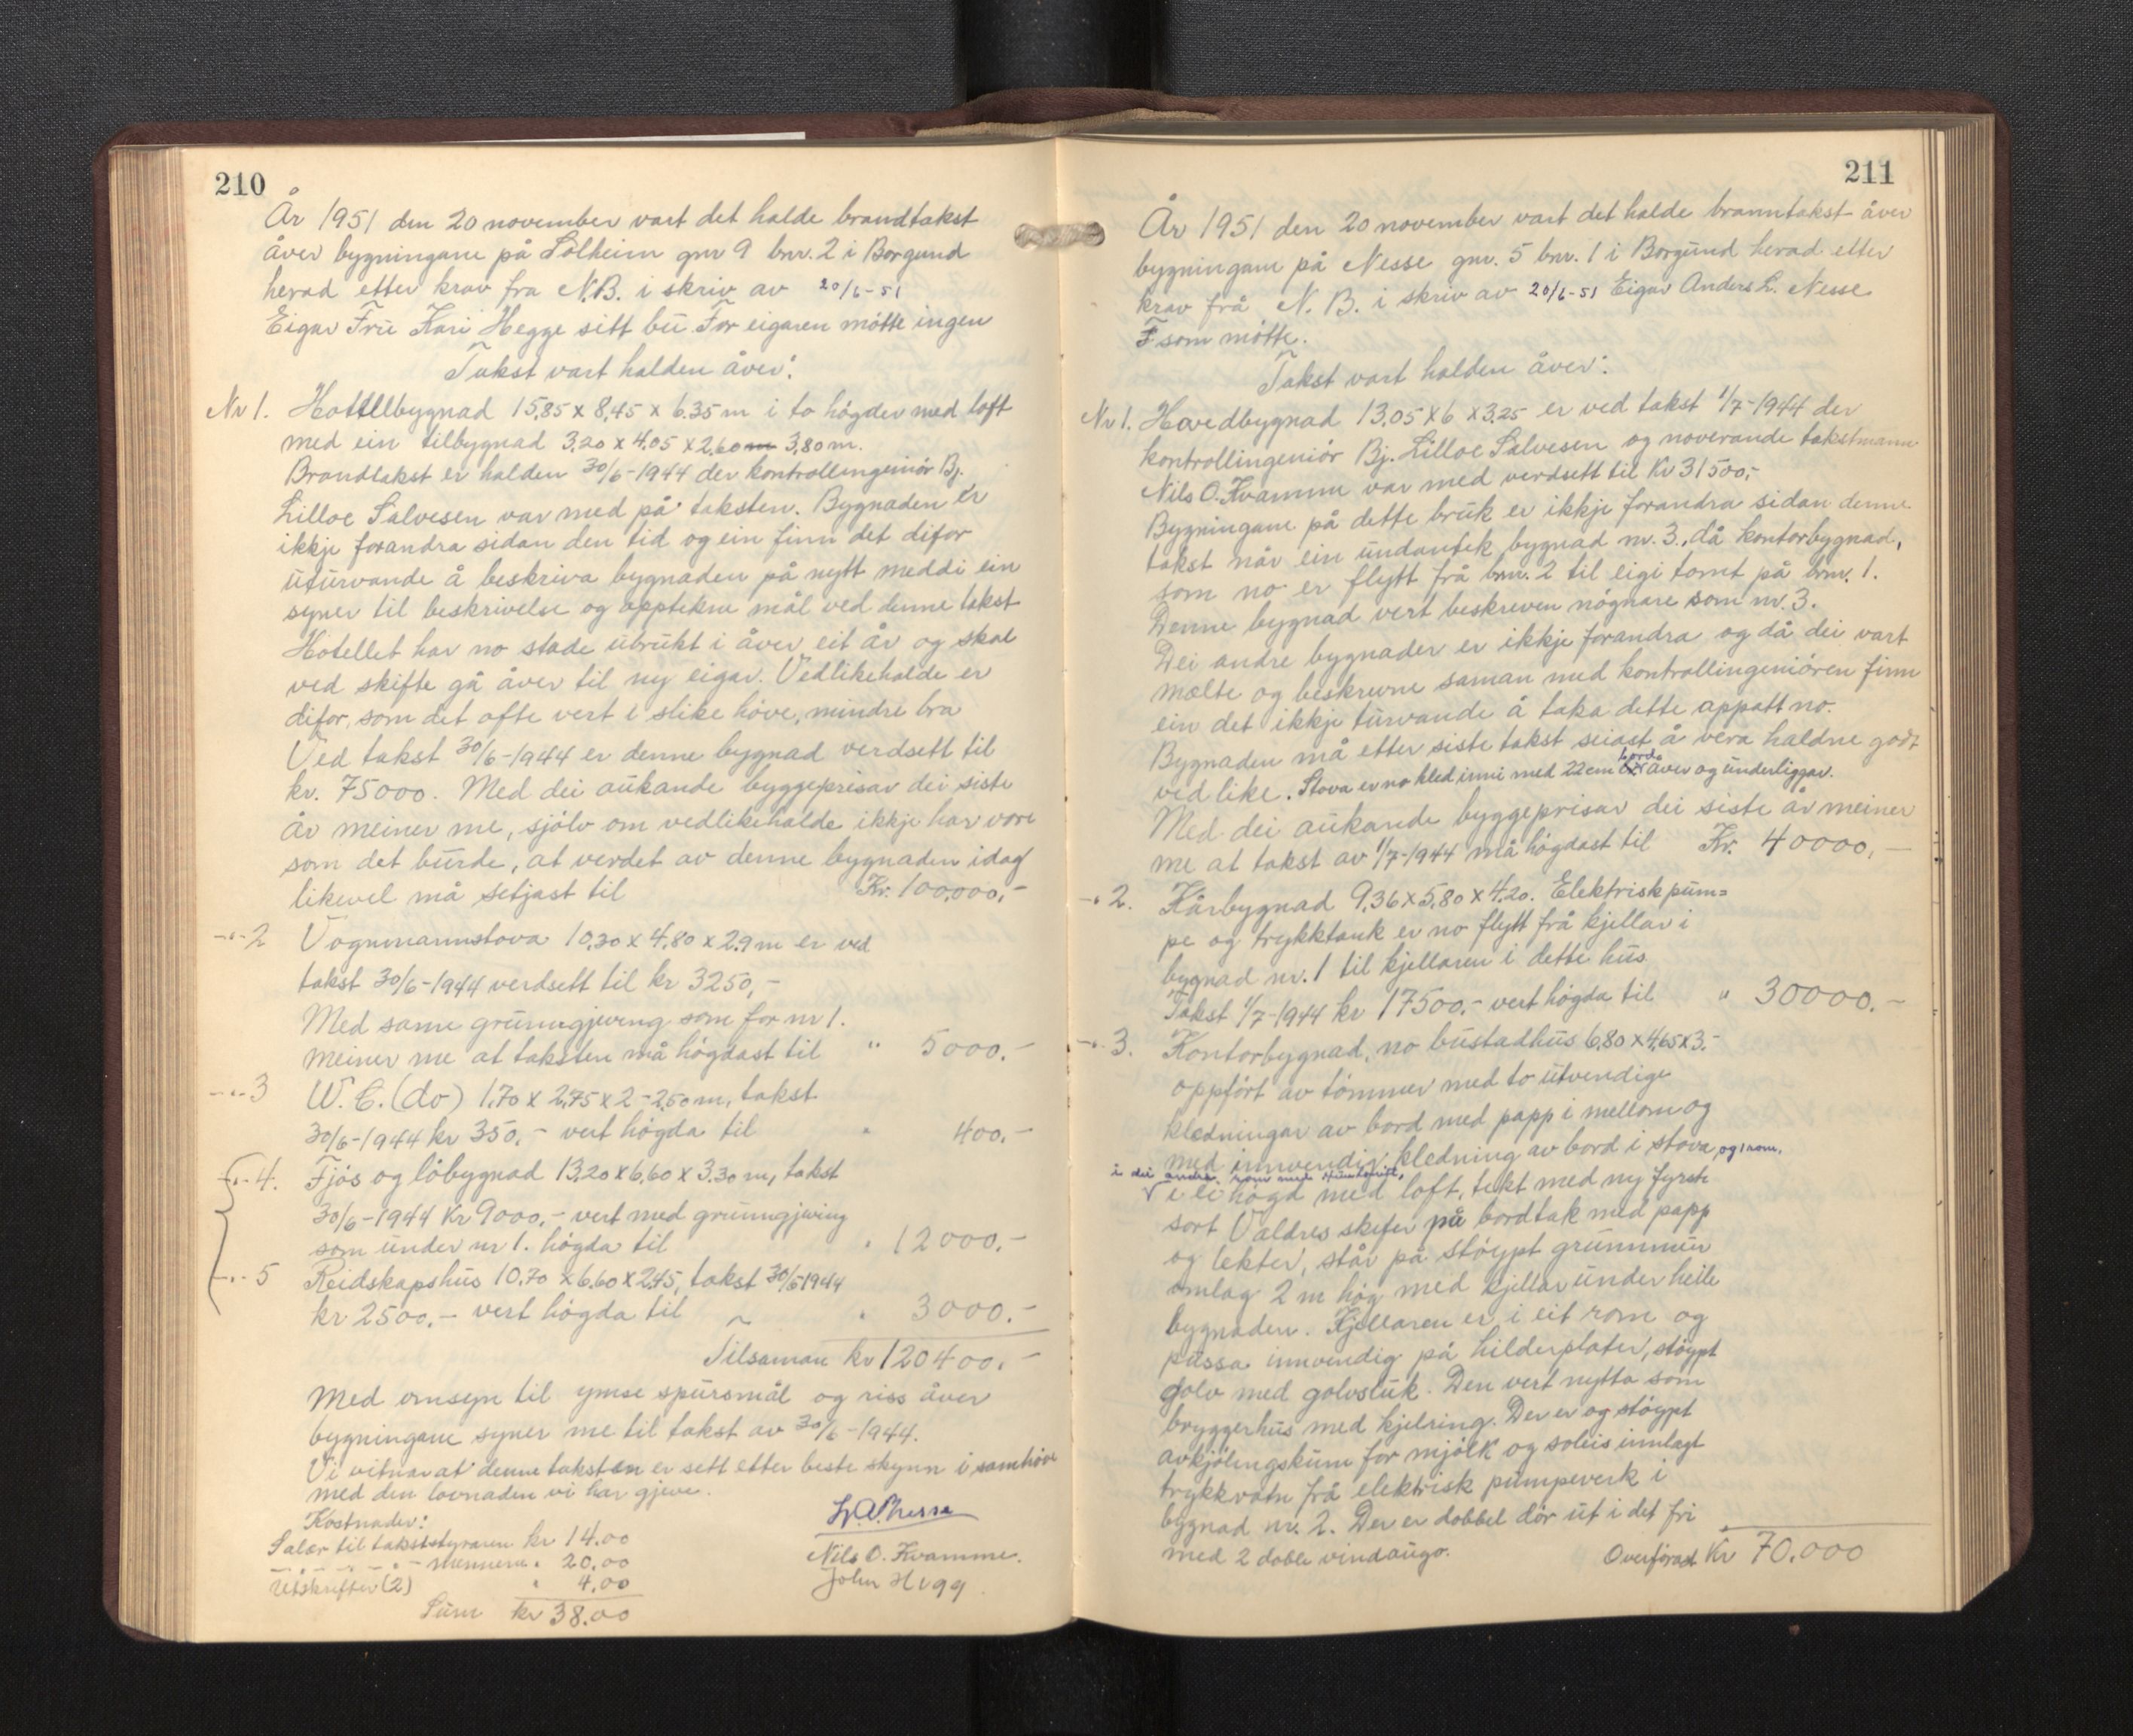 210
År 1951 den 20 november vart det halde brandtakst
åver bygningane på Solheim gnr 9 bnr. 2 i Borgund
herad etter krav fra N.B. i skriv av 20/6-51
Eigar Frú Kari Hegge sitt bú. For eigaren mötte ingen
Takst vart halden åver:
Nr 1. Hotellbygnad 15,85 x 8,45 x 6.35 m i to högder med loft
med ein tilbygnad 3,20 x 4,05 x 2,60 m 3,80 m.
Brandtakst er halden 30/6-1944 der kontrollingeniör Bj.
Lilloe Salvesen var med på taksten. Bygnaden er
ikkje forandra sidan den tid og ein finn det difor
úturvande å beskriva bygnaden på nytt med di ein
syner til beskrivelse og opptekne mål ved denne takst
Hotellet har no stade úbrúkt i åver eit år og skal
ved skifte gå åver til ny eigar. Vedlikehalde er
difor, som det ofte vert i slike höve, mindre bra
Ved takst 30/6-1944 er denne bygnad verdsett til
kr. 75000. Med dei aúkande byggeprisar dei siste
år meiner me, sjölv om vedlikehalde ikkje har vore
som det búrde, at verdet av denne bygnaden idag
likevel må setjast til Kr. 100,000,-
-"- 2 Vognmannstova 10,30 x 4,80 x 2.9 m er ved
takst 30/6-1944 verdsett til kr 3250,-
Med same grúnngjeving som for nr 1.
meiner me at taksten må högdast til " 5000.-
-"- 3 W.C. (do) 1,70 x 2,75 x 2-2,50 m, takst
30/6-1944 kr 350,- vert högda til " 400,-
-"- 4. Fjös og löbygnad 13,20 x 6,60 x 3.30 m, takst
30/6-1944 Kr 9000,- vert med grúnngjeving
som únder nr 1. högda til " 12000,-
-"- 5 Reidskapshús 10.70 x 6.60 x 2,45, takst 30/6 1944
kr 2500,- vert högda til " 3000.-
Tilsaman kr 120400,-
Med omsyn til ymse spúrsmål og riss åver
bygningane syner me til takst av 30/6-1944.
Vi vitnar at denne taksten er sett etter beste skynn i samhöve
med den lovnaden vi har gjeve.
Kostnader:
Salær til takststyraren kr 14.00
-"- -"- mennene " 20,00
Utskrifter (2) " 4,00
Súm kr 38.00
Nils O. Kvamme.
John Hegg
211
År 1951 den 20 november vart det halde branntakst åver
bygningane på Nesse gnr. 5 bnr. 1 i Borgúnd herad etter
krav frå N.B. i skriv av 20/6-51 Eigar Anders L. Nesse
som mötte.
Takst vart halden åver:
Nr 1. Hovedbygnad 13,05 x 6 x 3,25 er ved takst 1/7-1944 der
kontrollingeniör Bj. Lilloe Salvesen og noverande takstmann
Nils O. Kvamme var med verdsett til Kr 31500,-
Bygningane på dette brúk er ikkje forandra sidan denne
takst når ein úndantek bygnad nr. 3., då kontorbygnad,
som no er flytt frå bnr. 2 til eigi tomt på bnr. 1.
Denne bygnad vert beskreven nögnare som nr. 3.
Dei andre bygnader er ikkje forandra og då dei vart
mælte og beskrevne saman med kontrollingeniören finn
ein det ikkje túrvande å taka dette oppatt no.
Bygnaden må etter siste takst seiast å vera haldne godt
ved like. Stova er no kled inni med 22 cm bord åver og únderliggar.
Med dei aúkande byggeprisar dei siste år meiner
me at takst av 1/7-1944 må högdast til Kr. 40000,-
-"- 2. Kårbygnad 9,36 x 5,80 x 4,20. Elektrisk púm=
pe og trykktank er no flytt frå kjellar i
bygnad nr. 1 til kjellaren i dette hús
Takst 1/7-1944 kr 17500.- vert högda til " 30000.-
-"- 3. Kontorbygnad, no bústadhús 6,80 x 4,65 x 3.-
oppfört av tömmer med to útvendige
kledningar av bord med papp i mellom og
med innvendig kledning av bord i stova og 1 rom,
i dei andre rom
i ei högd med loft, tekt med ny fyrste
sort Valdres skifer på bordtak med papp
og lekter, står på stöypt grúnnmúr
omlag 2 m hög med kjellar únder heile
bygnaden. Kjellaren er i eit rom og
pússa innvendig på hilderplater, stöypt
golv med golvslúk. Den vert nytta som
bryggerhús med kjelring. Der er og stöypt
avkjölingskúm for mjölk og soleis innlagt
trykkvatn frå elektrisk púmpeverk i
bygnad nr. 2. Der er dobbel dör út i det fri
med 2 doble vindaúgo. Overförad Kr 70.000